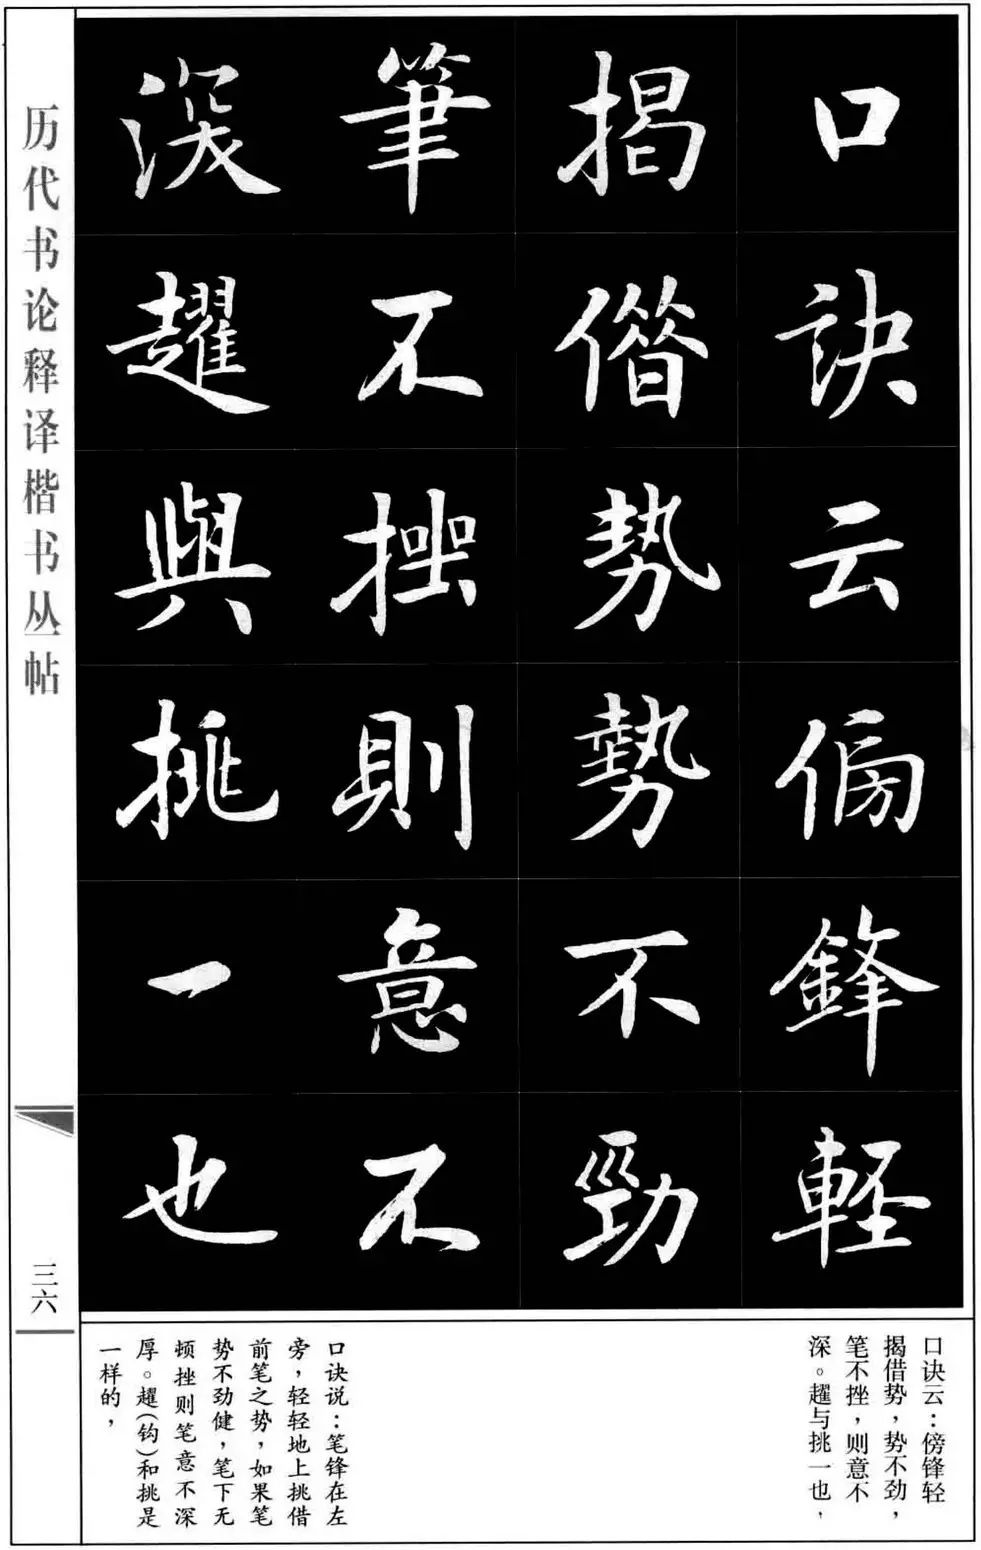 口訣云傍鋒輕
揭借勢勢不勁
筆不挫則意不
深趯與挑一也
历代书论释译楷书丛帖
三六
口诀云：傍锋轻
揭借势，势不劲，
笔不挫，则意不
深。趯与挑一也，
口诀说：笔锋在左
旁，轻轻地上挑借
前笔之势，如果笔
势不劲健，笔下无
顿挫则笔意不深
厚。趯（钩）和挑是
一样的，